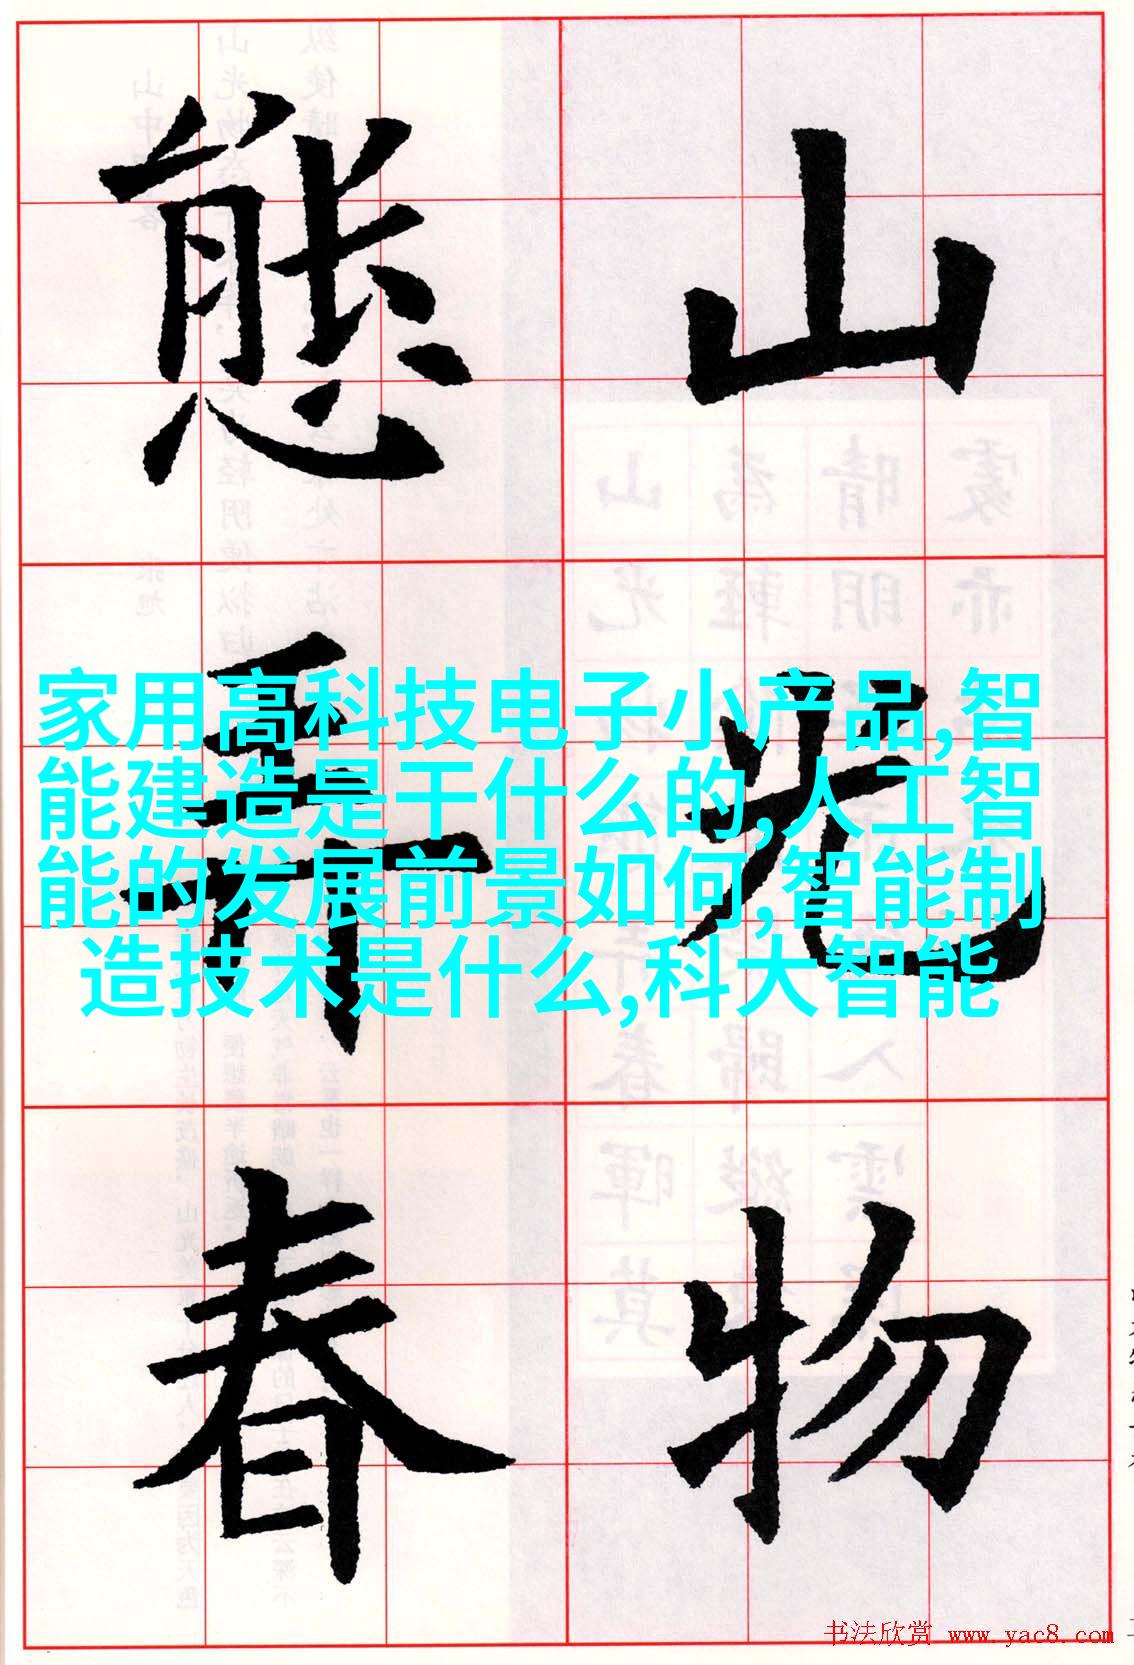 山光物
態弄春
家用高科技电子小产品,智
能建造是干什么的,人工智
能的发展前景如何,智能制
造技术是什么,科大智能
书法欣赏 www.yac8.com